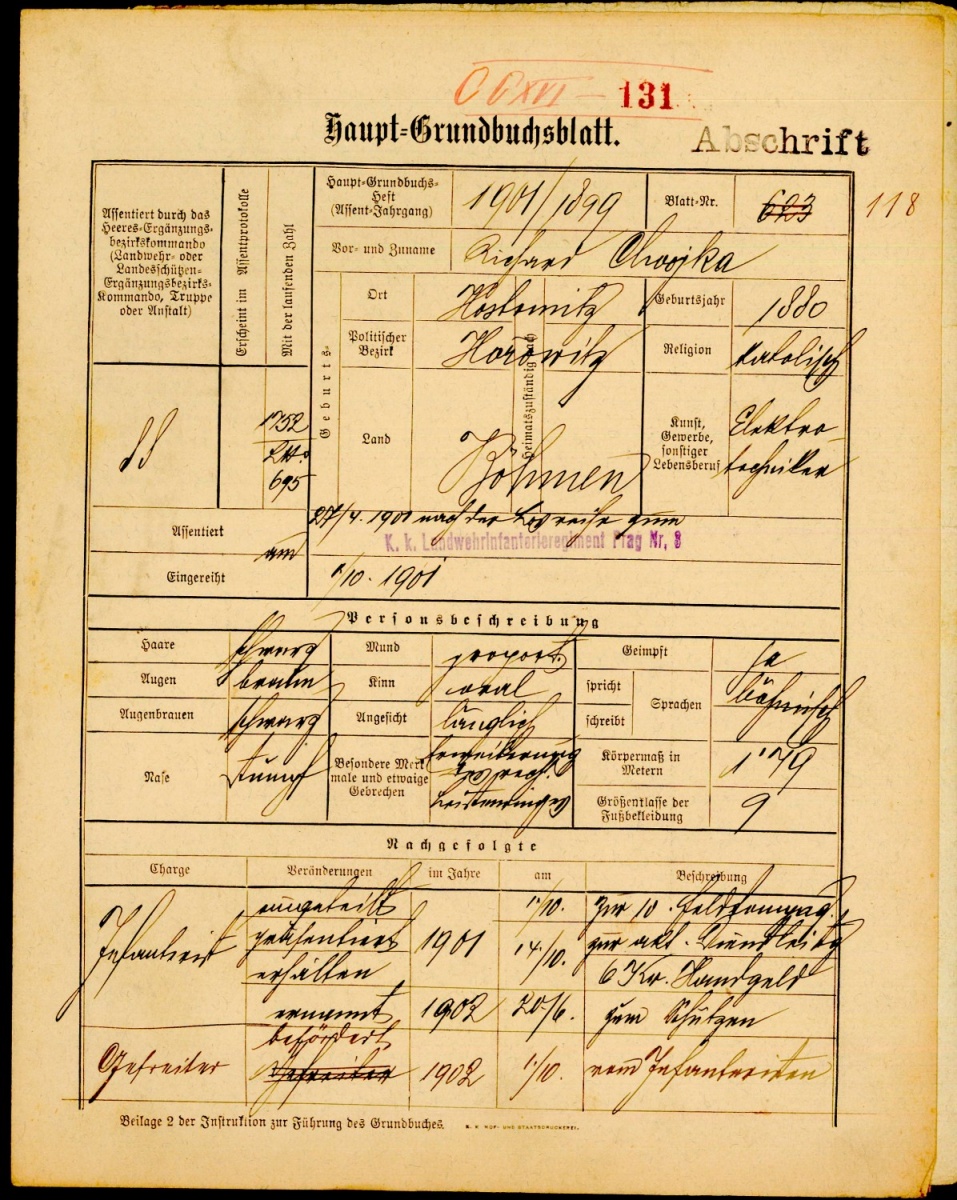 CCXVI — 131
Haupt=Grundbuchsblatt.
Abschrift
Assentiert durch das
Heeres=Ergänzungs=
bezirkskommando
(Landwehr= oder
Landesschützen=
Ergänzungsbezirks=
Kommando, Truppe
oder Anstalt)
Erscheint im Assentprotokolle
Mit der laufenden Zahl
1752
695
Haupt=Grundbuchs=
Heft
(Assent=Jahrgang)
1901/1899
Blatt=Nr.
623
118
Vor= und Zuname
Richard Chvojka
Geburts=
Heimatszuständig nach
Ort
Hostomitz
Geburtsjahr
1880
Politischer
Bezirk
Horowitz
Religion
katolisch
Land
Böhmen
Kunst,
Gewerbe,
sonstiger
Lebensberuf
Elektro
techniker
Assentiert
am
27/4. 1901 nach der Losreihe zum
K. k. Landwehrinfanterieregiment Prag Nr. 8
Eingereiht
1/10. 1901
Personsbeschreibung
Haare
schwarz
Mund
proport.
Geimpft
ja
Augen
braun
Kinn
oval
spricht
schreibt
Sprachen
böhmisch
Augenbrauen
schwarz
Angesicht
länglich
Nase
stumpf
Besondere Merk
male und etwaige
Gebrechen
Erweiterung
Leistenringes
Körpermaß in
Metern
1·79
Größenklasse der
Fußbekleidung
9
Nachgefolgte
Charge
Veränderungen
im Jahre
am
Beschreibung
Infanterist
eingeteilt
1/10.
zur 10. Feldkompag.
präsentiert
1901
14/10.
zur akt. Dienstleistg
erhalten
6 Kr. Handgeld
ernannt
1902
20/6.
zum Schützen
Gefreiter
befördert
Gefreiter
1902
1/10.
vom Infanteristen
Beilage 2 der Instruktion zur Führung des Grundbuches.
K. K. HOF- UND STAATSDRUCKEREI.